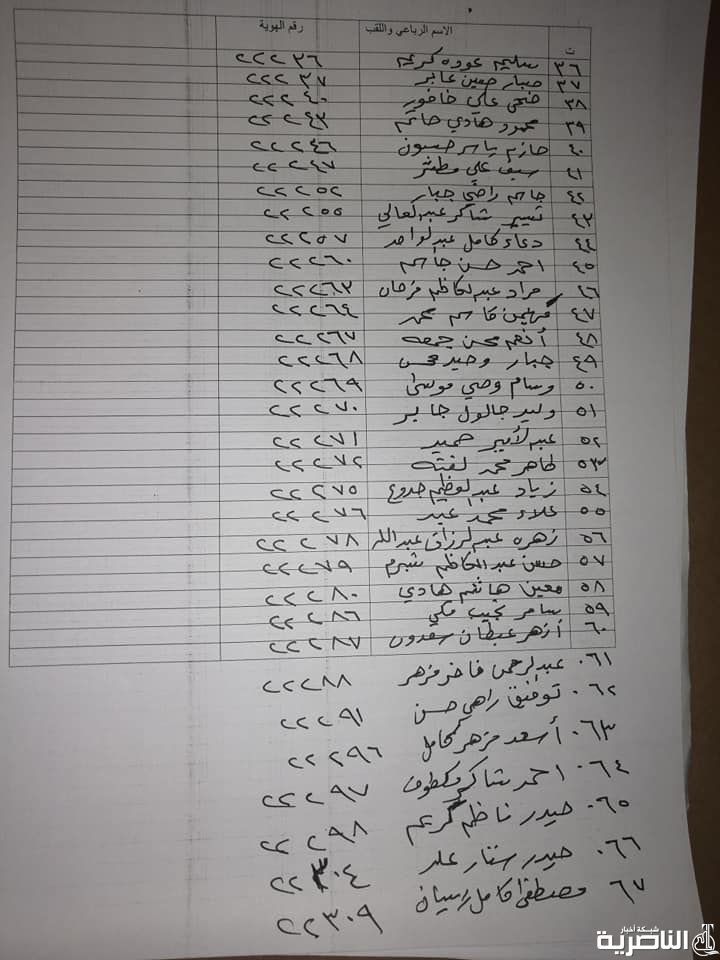 ت الاسم الرباعي واللقب رقم الهوية
٣٦ سليم عوده كريم ٢٢٢٣٦
٣٧ جبار حسين عابر ٢٢٢٣٧
٣٨ ضحى علي خافور ٢٢٢٤٠
٣٩ محمود هادي حاتم ٢٢٢٤٣
٤٠ حازم ياسر حسون ٢٢٢٤٦
٤١ سيف علي مطشر ٢٢٢٤٧
٤٢ جاسم راضي جبار ٢٢٢٥٢
٤٣ تيسير شاكر عبدالعالي ٢٢٢٥٥
٤٤ دعاء كامل عبدالواحد ٢٢٢٥٧
٤٥ احمد حسن جاسم ٢٢٢٦٠
٤٦ مراد عبدالكاظم فرحان ٢٢٢٦٣
٤٧ مهيمن قاسم محمد ٢٢٢٦٤
٤٨ أنعم محسن جمعه ٢٢٢٦٧
٤٩ جبار وحيد محسن ٢٢٢٦٨
٥٠ وسام وصي موسى ٢٢٢٦٩
٥١ وليد جالول جابر ٢٢٢٧٠
٥٢ عبدالأمير حميد ٢٢٢٧١
٥٣ طاهر محمد لفته ٢٢٢٧٢
٥٤ زياد عبدالعظيم جدوع ٢٢٢٧٥
٥٥ علاء محمد عبيد ٢٢٢٧٦
٥٦ زهره عبدالرزاق عبدالله ٢٢٢٧٨
٥٧ حسن عبدالكاظم شبرم ٢٢٢٧٩
٥٨ معين هاشم هادي ٢٢٢٨٠
٥٩ سامر نجيب مكي ٢٢٢٨٦
٦٠ أزهر عبطان سعدون ٢٢٢٨٧
٦١. عبدالرحمن فاخر مزهر ٢٢٢٨٨
٦٢. توفيق راهي حسن ٢٢٢٩١
٦٣. أسعد مزهر كامل ٢٢٢٩٦
٦٤. احمد شاكر مكطوف ٢٢٢٩٧
٦٥. حيدر ناظم كريم ٢٢٢٩٨
٦٦. حيدر ستار علي ٢٢٣٠٤
٦٧ مصطفى كامل رسيان ٢٢٣٠٩
شبكة أخبار
الناصرية